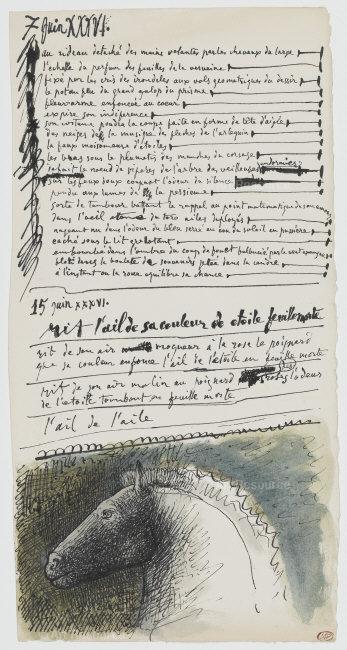 7 juin XXXVI.
au rideau detaché des mains volantes par les chevaux du large
l'échelle du parfum des feuilles de la verveine
fixé par les cris des irondeles aux vols geometriques du dessir
le potamogeton du grand galop du prisme
fleur arome enfoncé au coeur
expire son indiference
son costume poudra la coupe faite en forme de tête d'aigle
des neiges de la musique de fleches de l'arlequin
la faux moisonneuse d'étoiles
les bras sous le plumetis des manches du corsage
le noeud de vipares de l'arbre des veilleuses dormies
sur les faux doux coupant l'odeur du silence
pendu aux lames de la persienne
sorte de tambour battant le rappel au point matematique de son
dans l'oeil du toro ailes deployés
nageant nu dans l'odeur du bleu serre au cou du soleil en pussière
caché sous le lit grelotant
embouché dans l'ombre du coup de fouet balancé par le vent
blotti dans la boulete de souvenirs jetée dans la cendre
à l'instant ou la roue equilibre sa chance
15 juin XXXVI.
rit l'ail de sa couleur de etoile feuille morte
rit de son air moqueur à la rose le poignard
que sa couleur enfonce l'ail de l'etoile en feuille morte
rit de son air malin au poignard des roses l'odeur
de l'etoile tombant en feuille morte
l'ail de l'aile